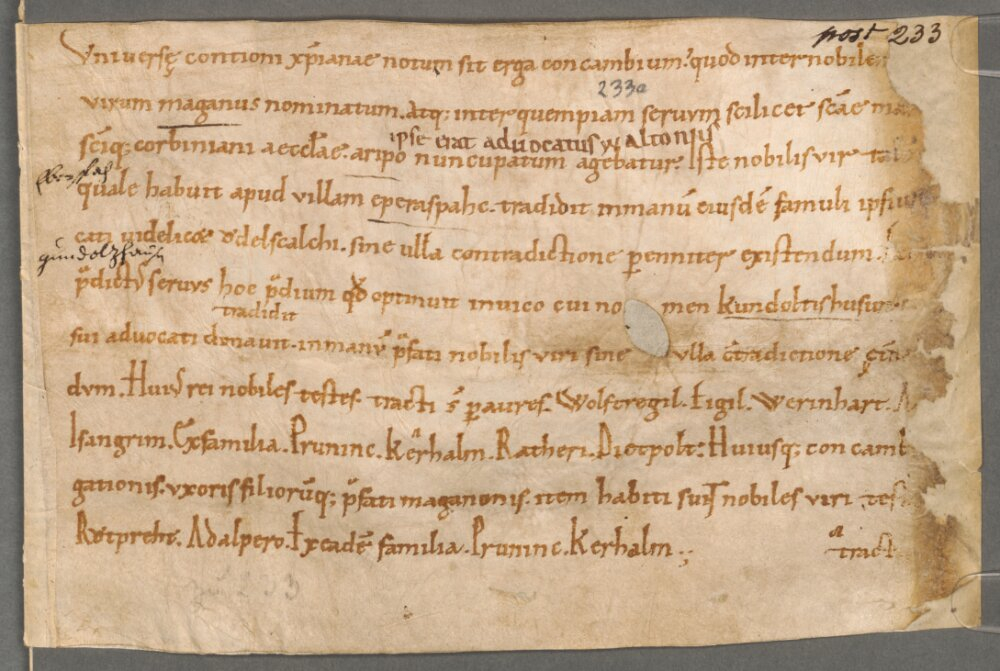 post 233
Universę contioni xp̄ianae notum sit erga concambium. quod inter nobilem
233a
virum maganus nominatum. Atq; inter quempiam servum scilicet scāe ma
ipse erat advocatus W Altonis
scīq; corbiniani aeccłae. aripo nuncupatum agebatur. Iste nobilis vir tale
quale habuit apud villam eperaspahc. tradidit in manū eiusdē famuli ipsius
gundolzhausn
cati videlicet odelscalchi. sine ulla contradictione p̱enniter existendum.
p̄dictus servus hoc p̄dium qđ optinuit in vico cui no men kundoltishusun
tradidit
sui advocati donavit. in manū p̄fati nobilis viri sine ulla c̄tradictione
dum. Huius rei nobiles testes. tracti s̄ p̱ aures. Wolftregil. Eigil. Werinhart. A
Isangrim. Exfamilia. Pruninc. Kerhalm. Ratheri. Dietpolt: Huiusq; concamb
gationis. uxoris filiorūq; p̄fati maganonis. item habiti sunt nobiles viri tes
Rotpreht. Adalpero. Excadē familia. Pruninc. Kerhalm.
tract
zu 233